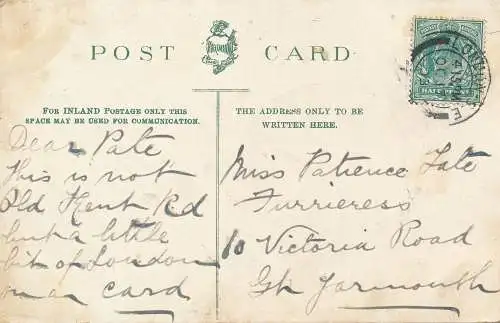 POST CARD
FOR INLAND POSTAGE ONLY THIS
SPACE MAY BE USED FOR COMMUNICATION.
THE ADDRESS ONLY TO BE
WRITTEN HERE.
Dear Pate
This is not
Old Kent Rd
but a little
bit of London
on a card
Miss Patience Tate
Furrieress
10 Victoria Road
Gt Yarmouth
LONDON
HALF PENNY